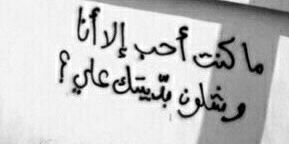 ما كنت أحب إلا أنا
وشلون بدّيتك علي ؟